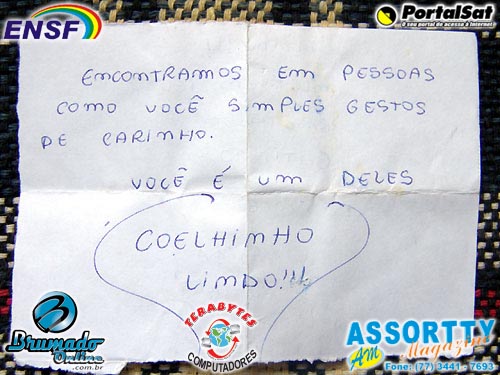 ENSF
PortalSat
O seu portal de acesso à Internet
ENCONTRAMOS EM PESSOAS
COMO VOCÊ SIMPLES GESTOS
DE CARINHO.
VOCÊ É UM DELES
COELHINHO
LINDO!!!
Brumado
Online
.com.br
TERABYTES
COMPUTADORES
ASSORTTY
AM Magazine
Fone: (77) 3441 - 7693